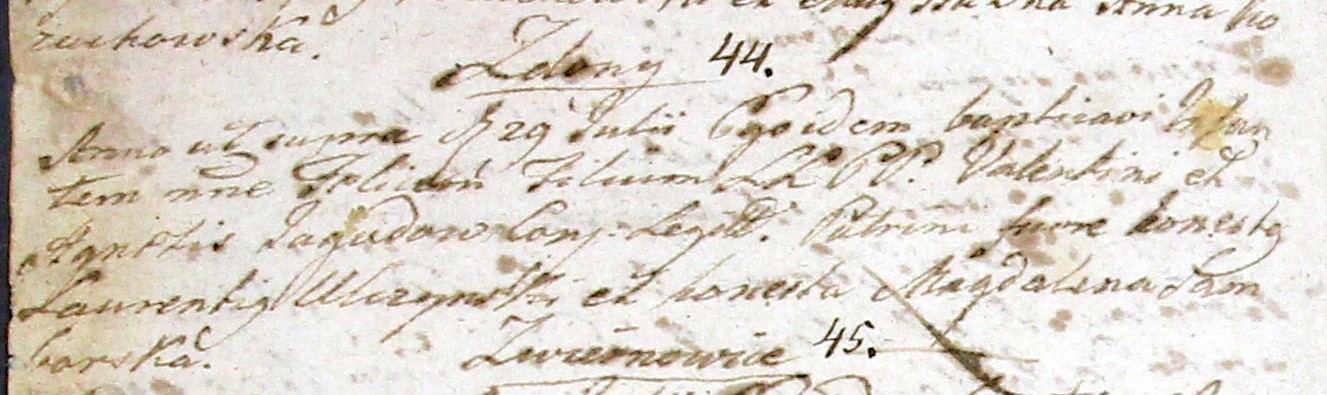 et Anna Ko
zuchowska.
Zdony 44.
Anno ut supra d 29 Julii Ego idem baptisavi Infan
tem nne Felicem Filium LL PP. Valentini et
Agnetis Jagudow Conj. Legitt. Patrini fuere honestg
Laurentig Ulczynski et honesta Magdalena Sam
borska.
Zwiernowice 45.